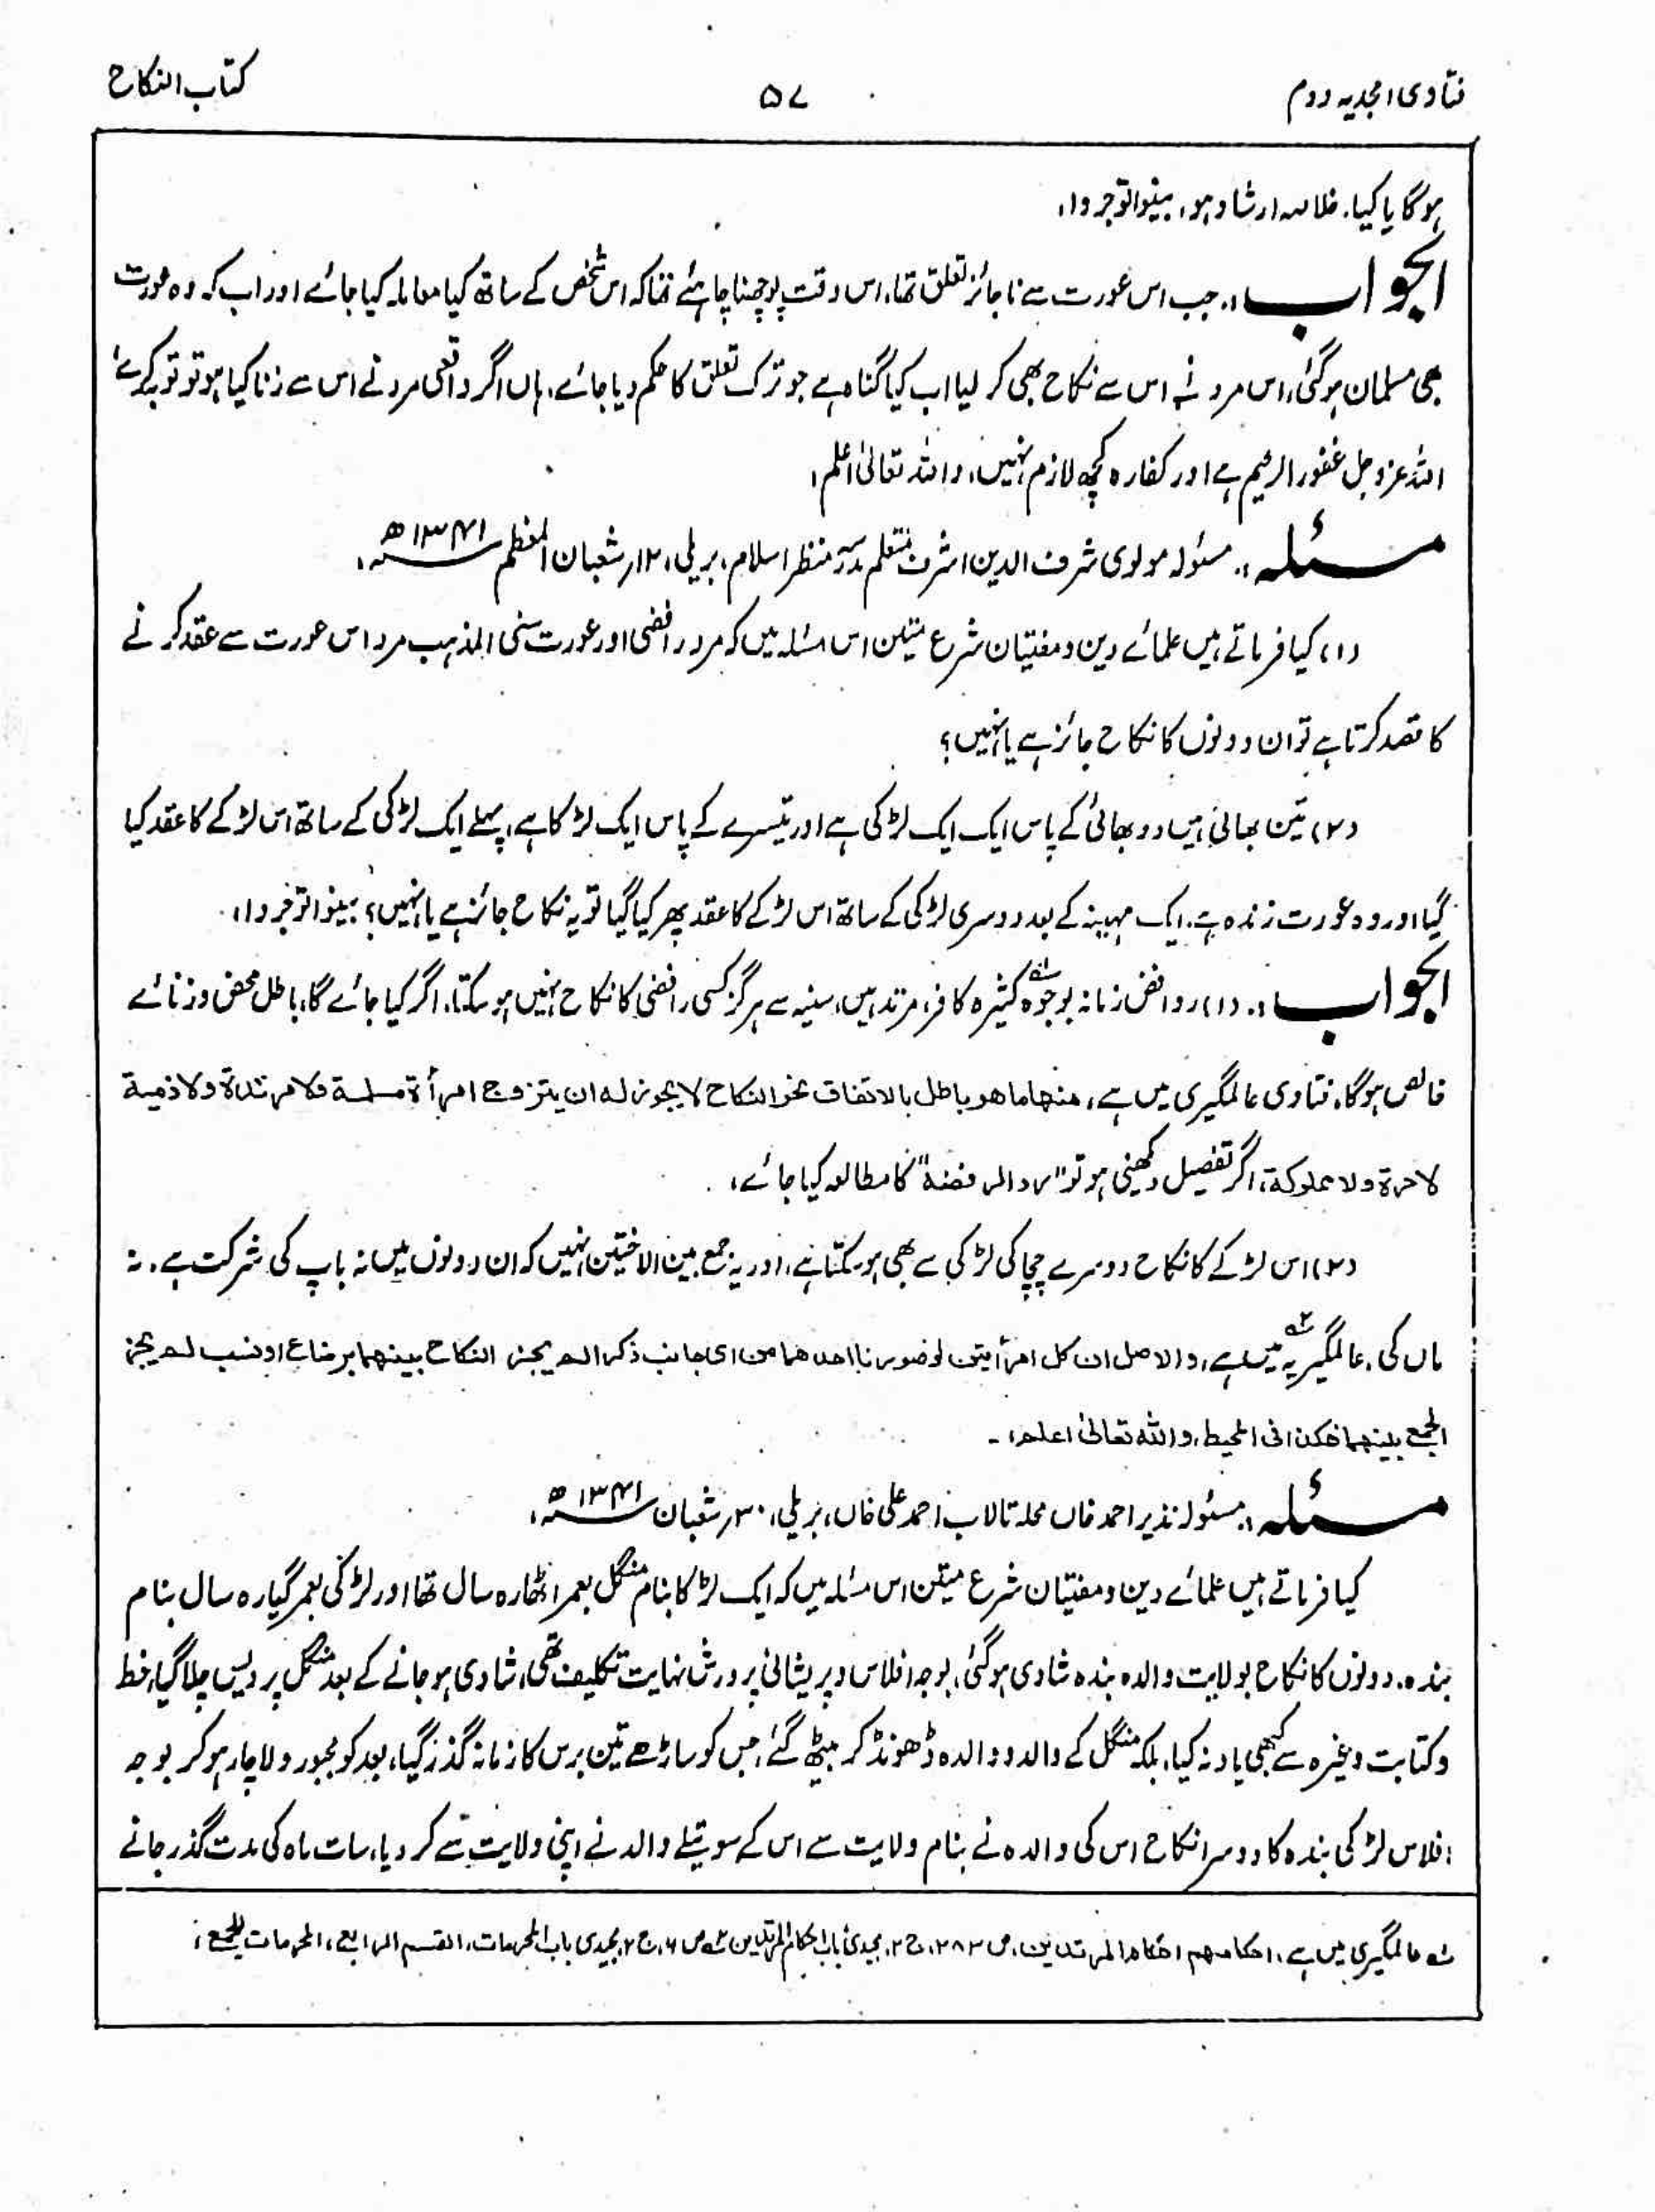 فتاویٰ امجدیہ دوم
۵۷
کتاب النکاح
ہوگا یا کیا۔ خلاصہ ارشاد ہو، بینوا توجروا،
الجواب :۔ جب اس عورت سے ناجائز تعلق تھا، اس وقت پوچھنا چاہئے تھا کہ اس شخص کے ساتھ کیا معاملہ کیا جائے اور اب کہ وہ عورت
بھی مسلمان ہوگئی، اس مرد نے اس سے نکاح بھی کر لیا اب کیا گناہ ہے جو ترک تعلق کا حکم دیا جائے، ہاں اگر واقعی مرد نے اس سے زنا کیا ہو تو توبہ کرے
اللہ عزوجل غفور الرحیم ہے اور کفارہ کچھ لازم نہیں، واللہ تعالیٰ اعلم،
مسئلہ :۔ مسئولہ مولوی شرف الدین اشرف متعلم مدرسہ منظر اسلام، بریلی، ۱۲ر شعبان المعظم ۱۳۴۱ھ،
(۱) کیا فرماتے ہیں علمائے دین و مفتیان شرع متین اس مسئلہ میں کہ مرد رافضی اور عورت سنی المذہب مرد اس عورت سے عقد کرنے
کا قصد کرتا ہے تو ان دونوں کا نکاح جائز ہے یا نہیں؟
(۲) تین بھائی ہیں دو بھائی کے پاس ایک ایک لڑکی ہے اور تیسرے کے پاس ایک لڑکا ہے، پہلے ایک لڑکی کے ساتھ اس لڑکے کا عقد کیا
گیا اور وہ عورت زندہ ہے، ایک مہینہ کے بعد دوسری لڑکی کے ساتھ اس لڑکے کا عقد پھر کیا گیا تو یہ نکاح جائز ہے یا نہیں؟ بینوا توجروا،
الجواب :۔ (۱) روافض زمانہ بوجوہ کثیرہ کافر، مرتد ہیں، سنیہ سے ہرگز کسی رافضی کا نکاح نہیں ہو سکتا، اگر کیا جائے گا، باطل محض و زنائے
خالص ہوگا، فتاویٰ عالمگیری میں ہے، منها ما هو باطل بالاتفاق نحو النكاح لا يجوز له ان يتزوج امرأة مسلمة ولا مرتدة ولا ذمية
لا حرة ولا مملوكة، اگر تفصیل دیکھنی ہو تو "رد الرفضة" کا مطالعہ کیا جائے،
(۲) اس لڑکے کا نکاح دوسرے چچا کی لڑکی سے بھی ہو سکتا ہے، اور یہ جمع بین الاختین نہیں کہ ان دونوں میں نہ باپ کی شرکت ہے۔ نہ
ماں کی، عالمگیریہ میں ہے، والاصل ان كل امرأتين لو صورنا احدهما من اي جانب ذكرا لم يجز النكاح بينهما برضاع او نسب لم يجز
الجمع بينهما هكذا في المحيط، والله تعالىٰ اعلم،۔
مسئلہ :۔ مسئولہ نذیر احمد خاں محلہ تالاب احمد علی خاں، بریلی، ۳۰ر شعبان ۱۳۴۱ھ،
کیا فرماتے ہیں علمائے دین و مفتیان شرع متین اس مسئلہ میں کہ ایک لڑکا بنام منگل بعمر اٹھارہ سال تھا اور لڑکی بعمر گیارہ سال بنام
بندہ۔ دونوں کا نکاح بولایت والدہ بندہ شادی ہوگئی، بوجہ افلاس و پریشانی پرورش نہایت تکلیف تھی، شادی ہو جانے کے بعد منگل پردیس چلا گیا، خط
و کتابت وغیرہ سے کبھی یاد نہ کیا، بلکہ منگل کے والد و والدہ ڈھونڈ کر بیٹھ گئے، جس کو ساڑھے تین برس کا زمانہ گذر گیا، بعد کو مجبور و لاچار ہو کر بوجہ
افلاس لڑکی بندہ کا دوسرا نکاح اس کی والدہ نے بنام ولایت سے اس کے سوتیلے والد نے اپنی ولایت سے کر دیا، سات ماہ کی مدت گذر جانے
عالمگیری میں ہے، احكامهم احكام المرتدين، ص ۲۸۳، ج ۲، مجیدی باب احکام المرتدین ص ۶، ج ۲، مجیدی باب المحرمات، القسم الرابع، المحرمات بالجمع؛